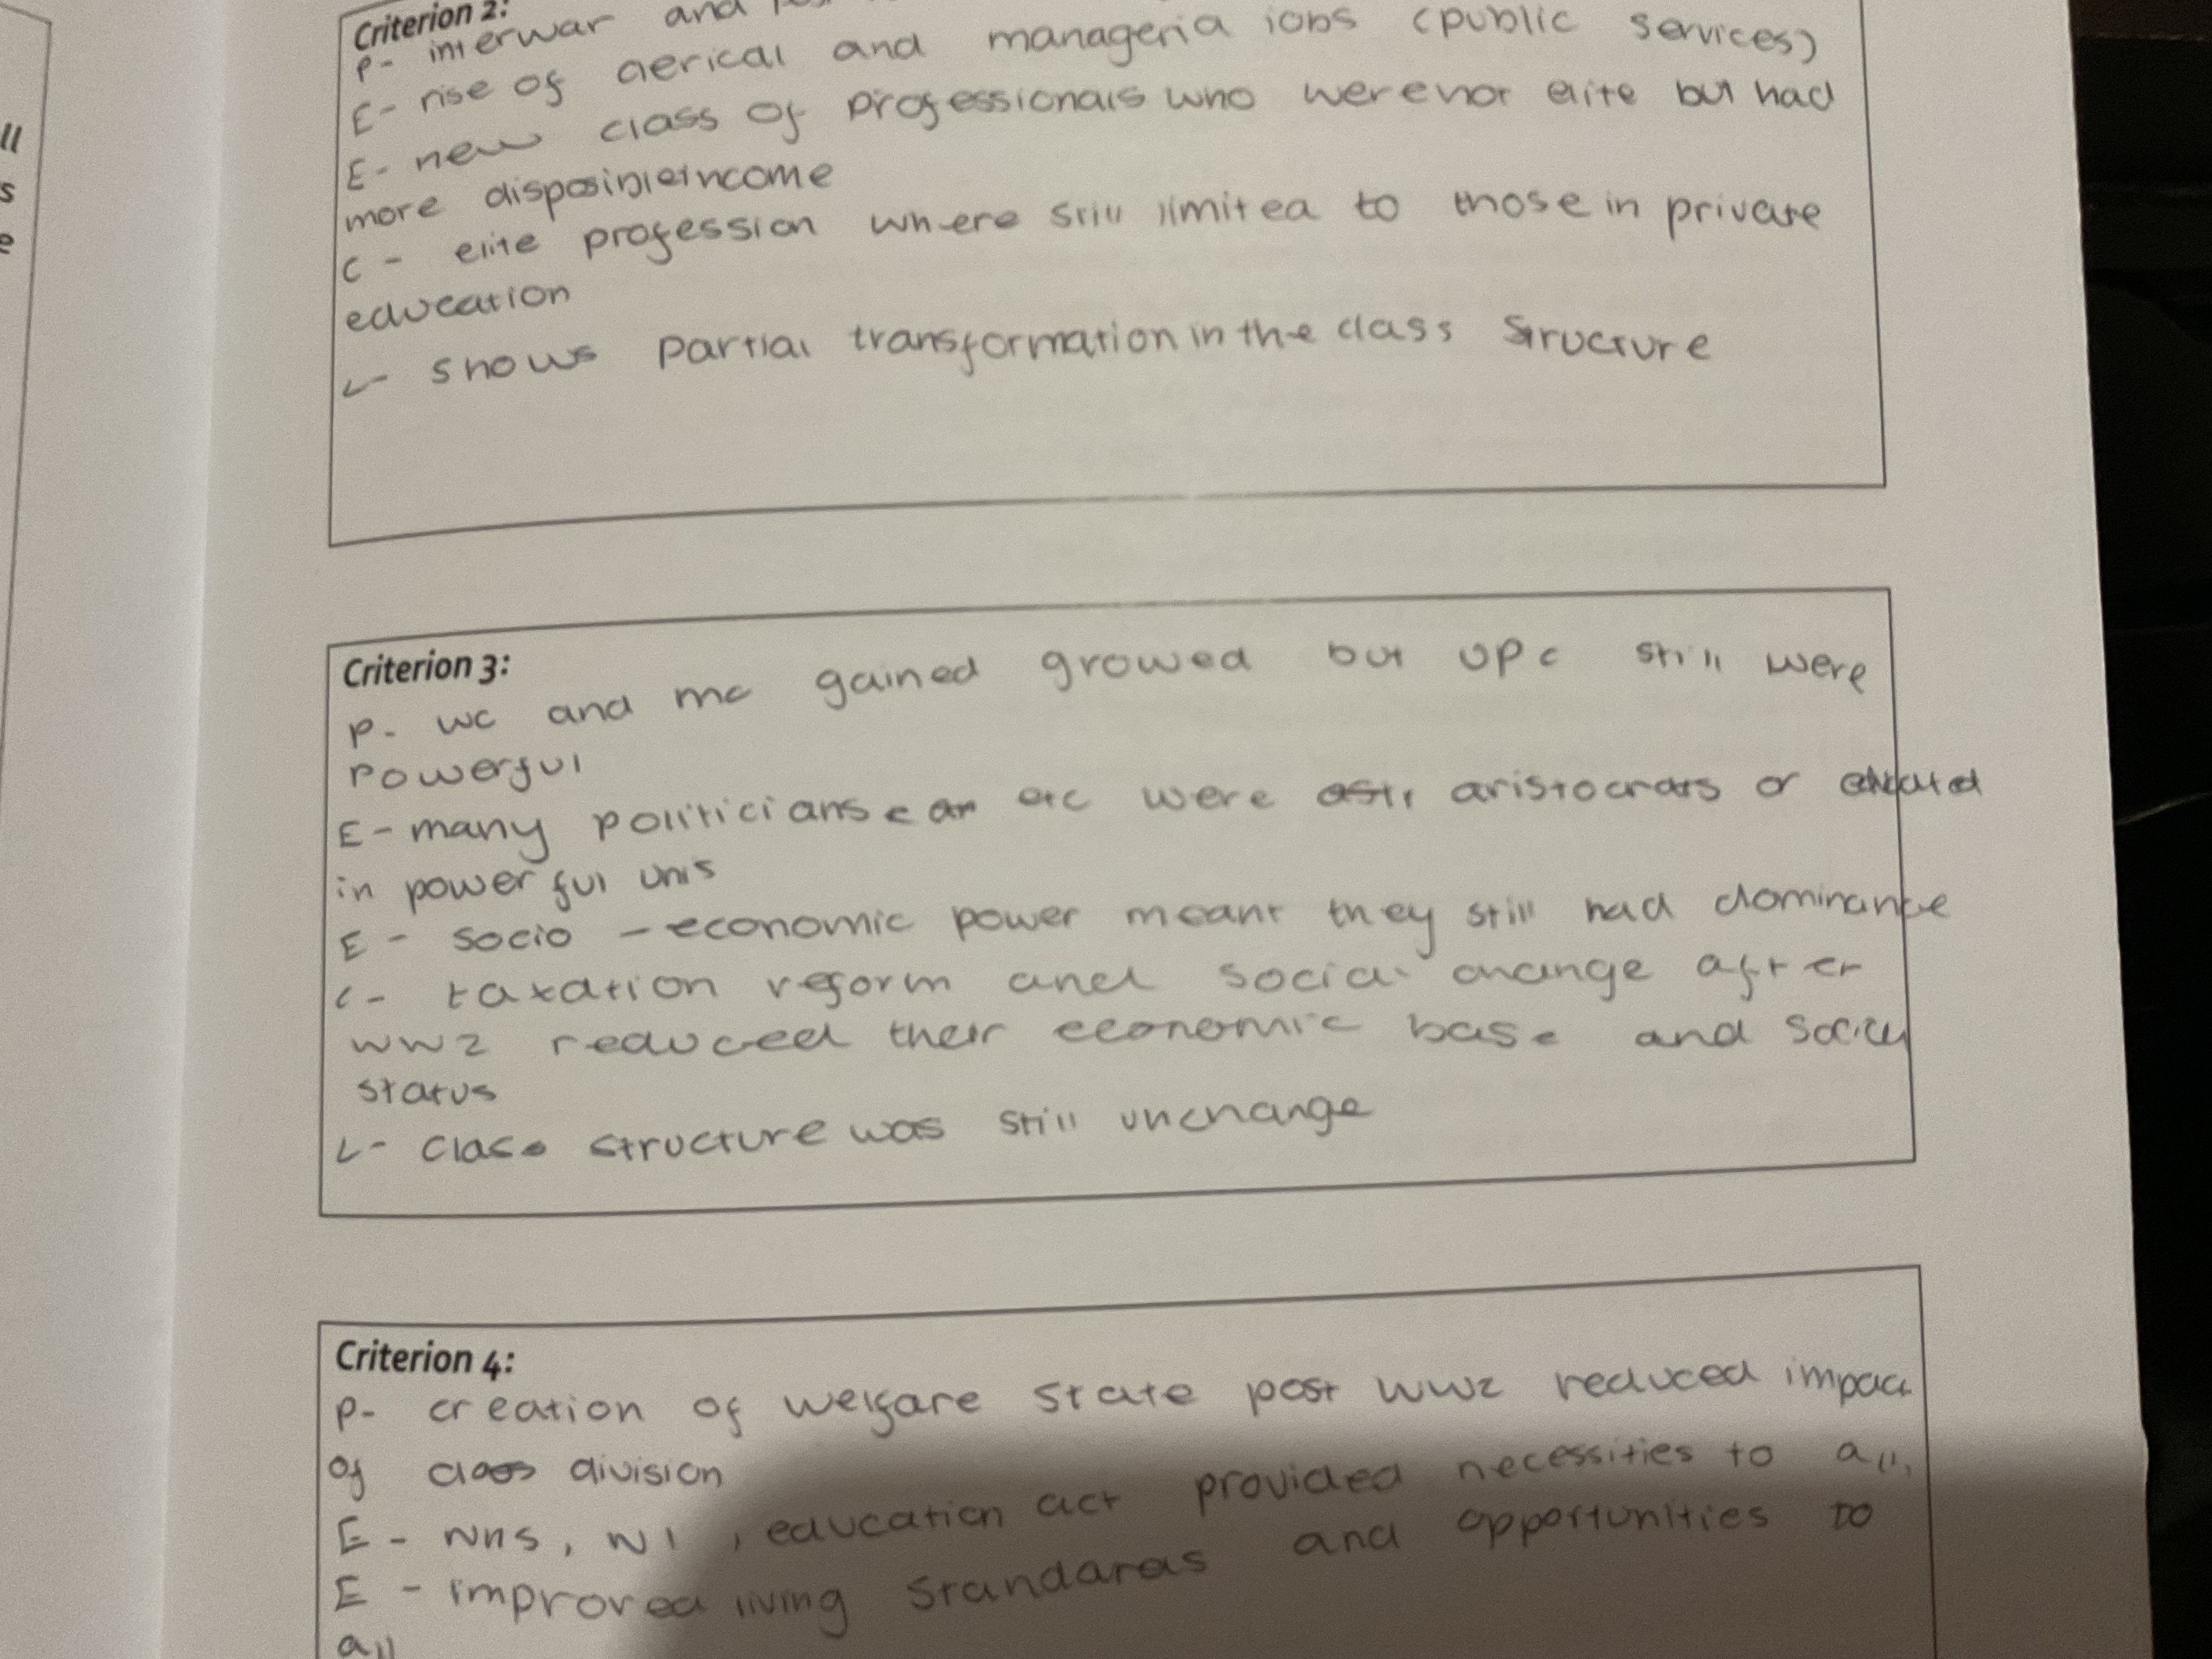 ll
s
e
Criterion 2:
P- interwar and
E- rise of clerical and manageria jobs (public services)
E- new class of professionals who were not elite but had
more disposible income
C - elite profession where still limited to those in private
education
L- shows partial transformation in the class structure
Criterion 3:
P- wc and mc gained growed but upc still were
powerful
E- many politicians etc were aristocrats or educated
in powerful unis
E - socio-economic power meant they still had dominance
C- taxation reform and social change after
ww2 reduced their economic base and social
status
L- class structure was still unchange
Criterion 4:
P- creation of welfare state post ww2 reduced impact
of class division
E- NHS, NI, education act provided necessities to all,
E - improved living standards and opportunities to
all